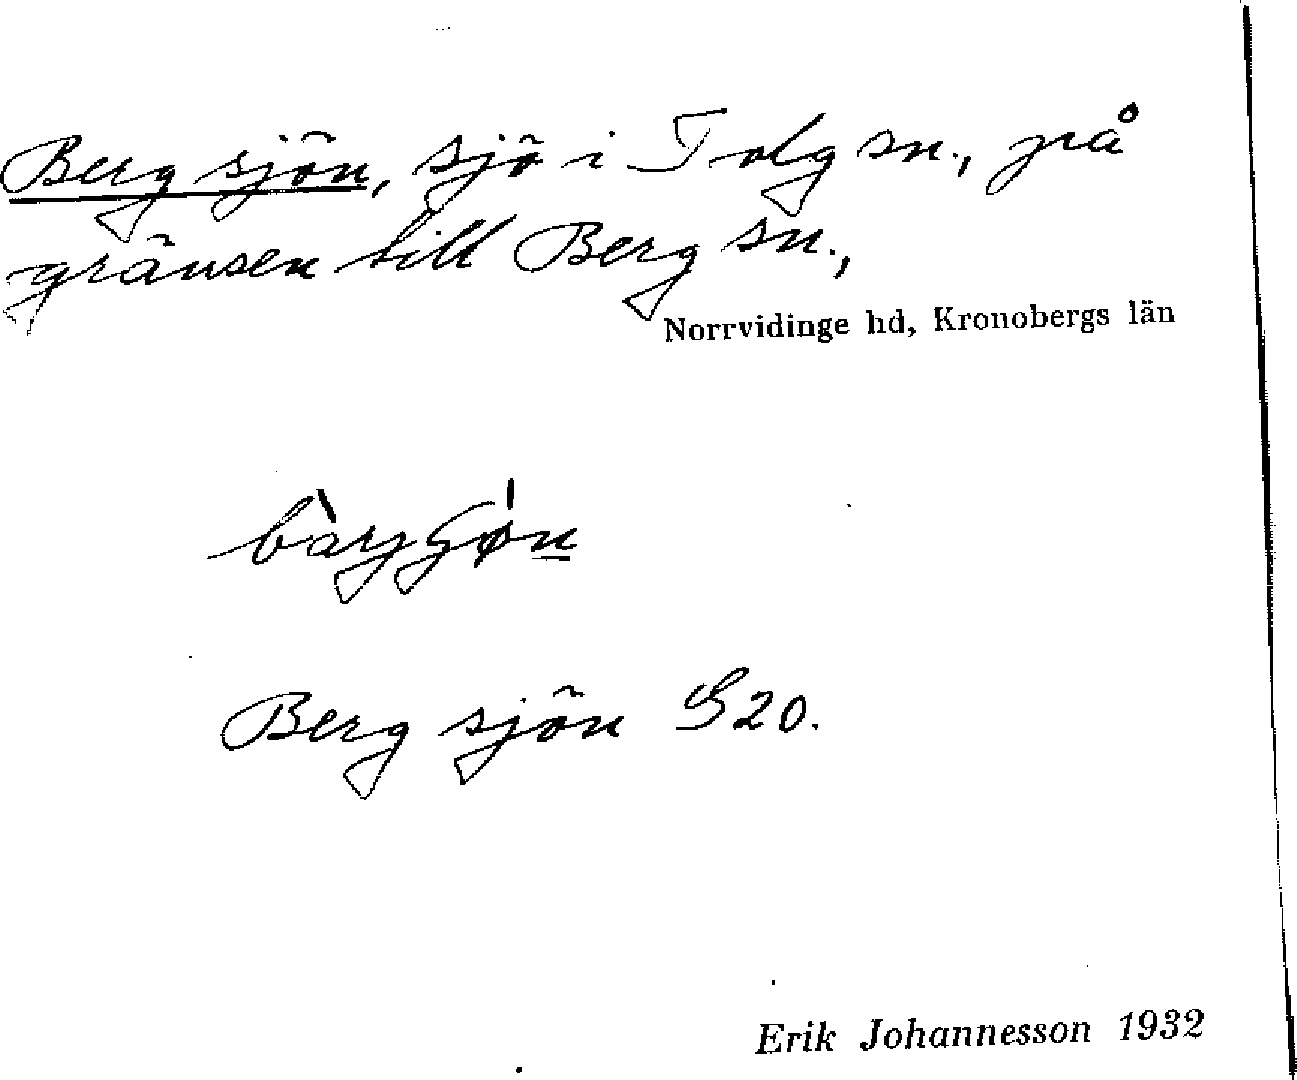 Bergsjön, sjö i Tolg sn., på
gränsen till Berg sn.,
Norrvidinge hd, Kronobergs län
Bergsjön G20.
Erik Johannesson 1932